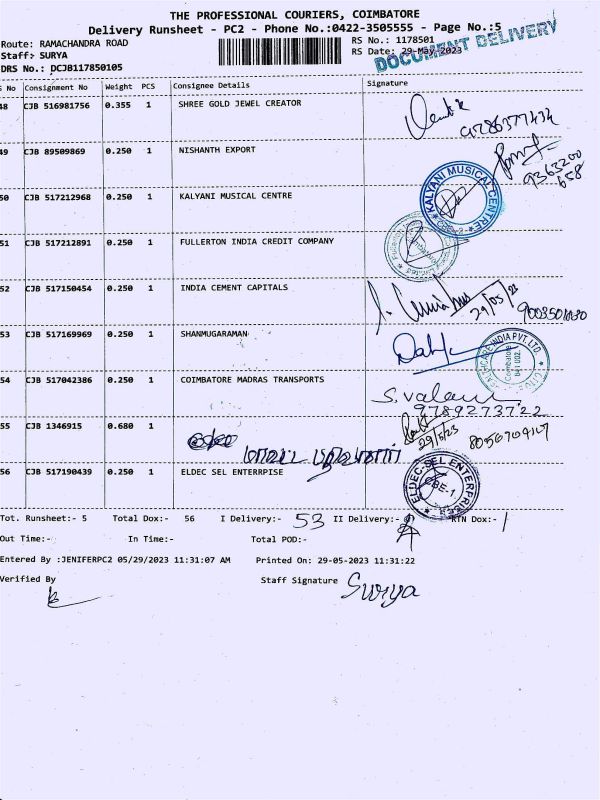 THE PROFESSIONAL COURIERS, COIMBATORE
Delivery Runsheet - PC2 - Phone No.:0422-3505555 - Page No.:5
Route: RAMACHANDRA ROAD
RS No.: 1178501
Staff: SURYA
RS Date: 29-May-2023
DOCUMENT DELIVERY
DRS No.: DCJB117850105
S No Consignment No Weight PCS Consignee Details Signature
48 CJB 516981756 0.355 1 SHREE GOLD JEWEL CREATOR
49 CJB 89509869 0.250 1 NISHANTH EXPORT
9363200
658
50 CJB 517212968 0.250 1 KALYANI MUSICAL CENTRE
KALYANI MUSICAL CENTRE
51 CJB 517212891 0.250 1 FULLERTON INDIA CREDIT COMPANY
52 CJB 517150454 0.250 1 INDIA CEMENT CAPITALS
29/05/23
53 CJB 517169969 0.250 1 SHANMUGARAMAN
54 CJB 517042386 0.250 1 COIMBATORE MADRAS TRANSPORTS
9789273722
55 CJB 1346915 0.680 1
29/5/23
56 CJB 517190439 0.250 1 ELDEC SEL ENTERRPISE
ELDEC-SEL ENTERPRISE
CBE-1
Tot. Runsheet:- 5 Total Dox:- 56 I Delivery:- 53 II Delivery:- RTN Dox:- 1
Out Time:- In Time:- Total POD:-
Entered By :JENIFERPC2 05/29/2023 11:31:07 AM Printed On: 29-05-2023 11:31:22
Verified By Staff Signature Surya